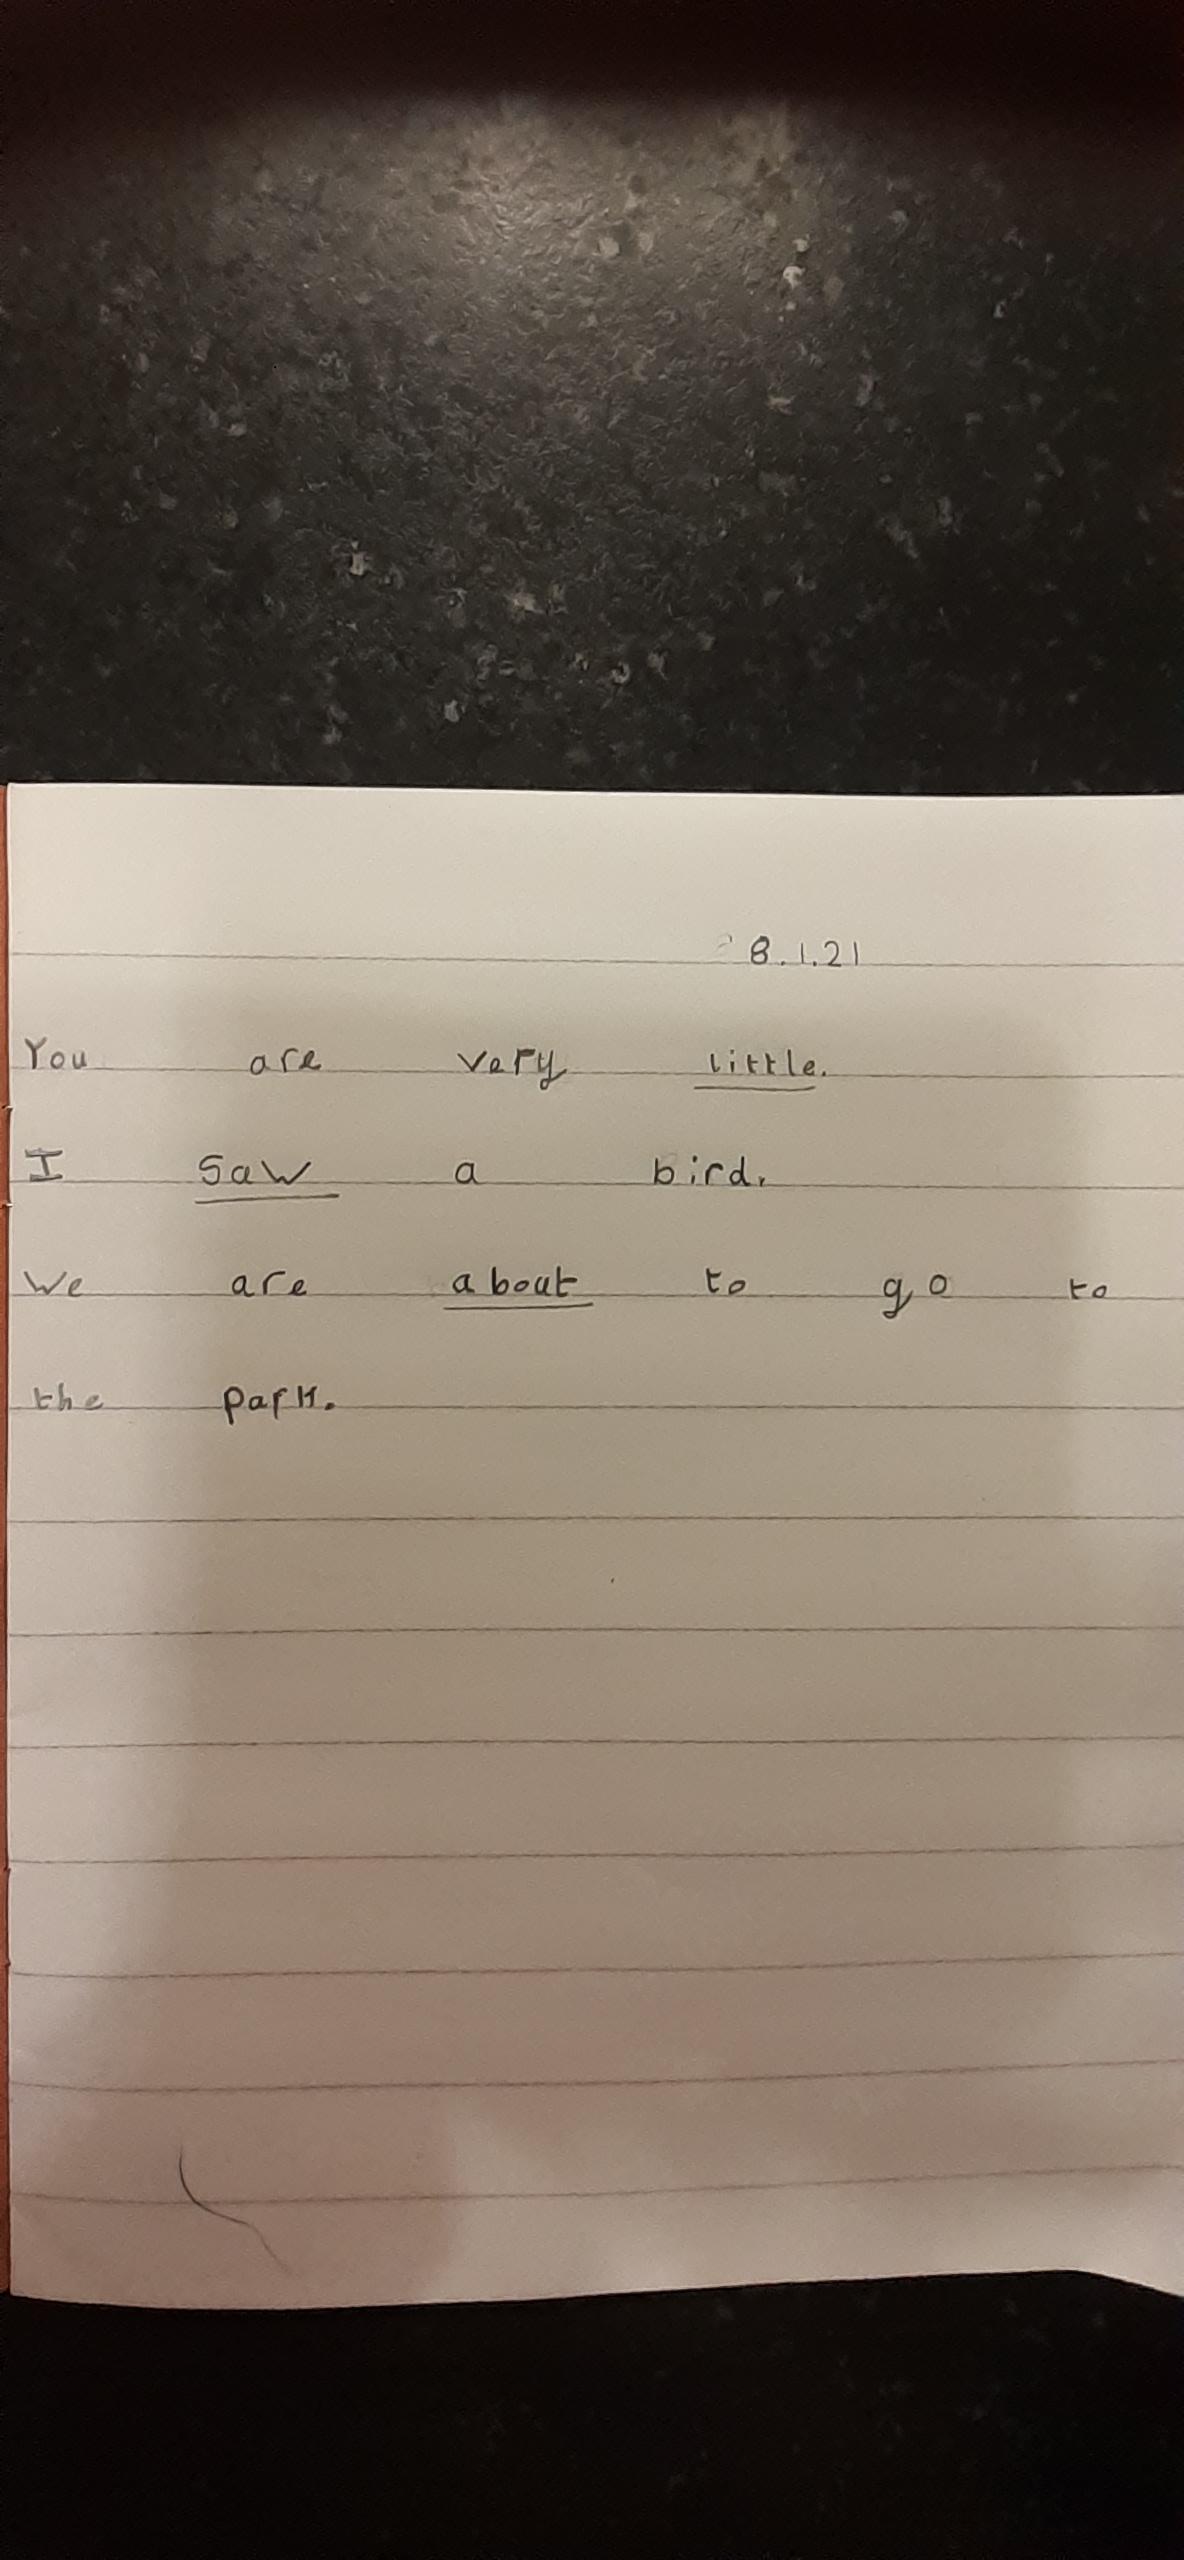 8.1.21
You are very little.
I saw a bird.
We are about to go to
the park.